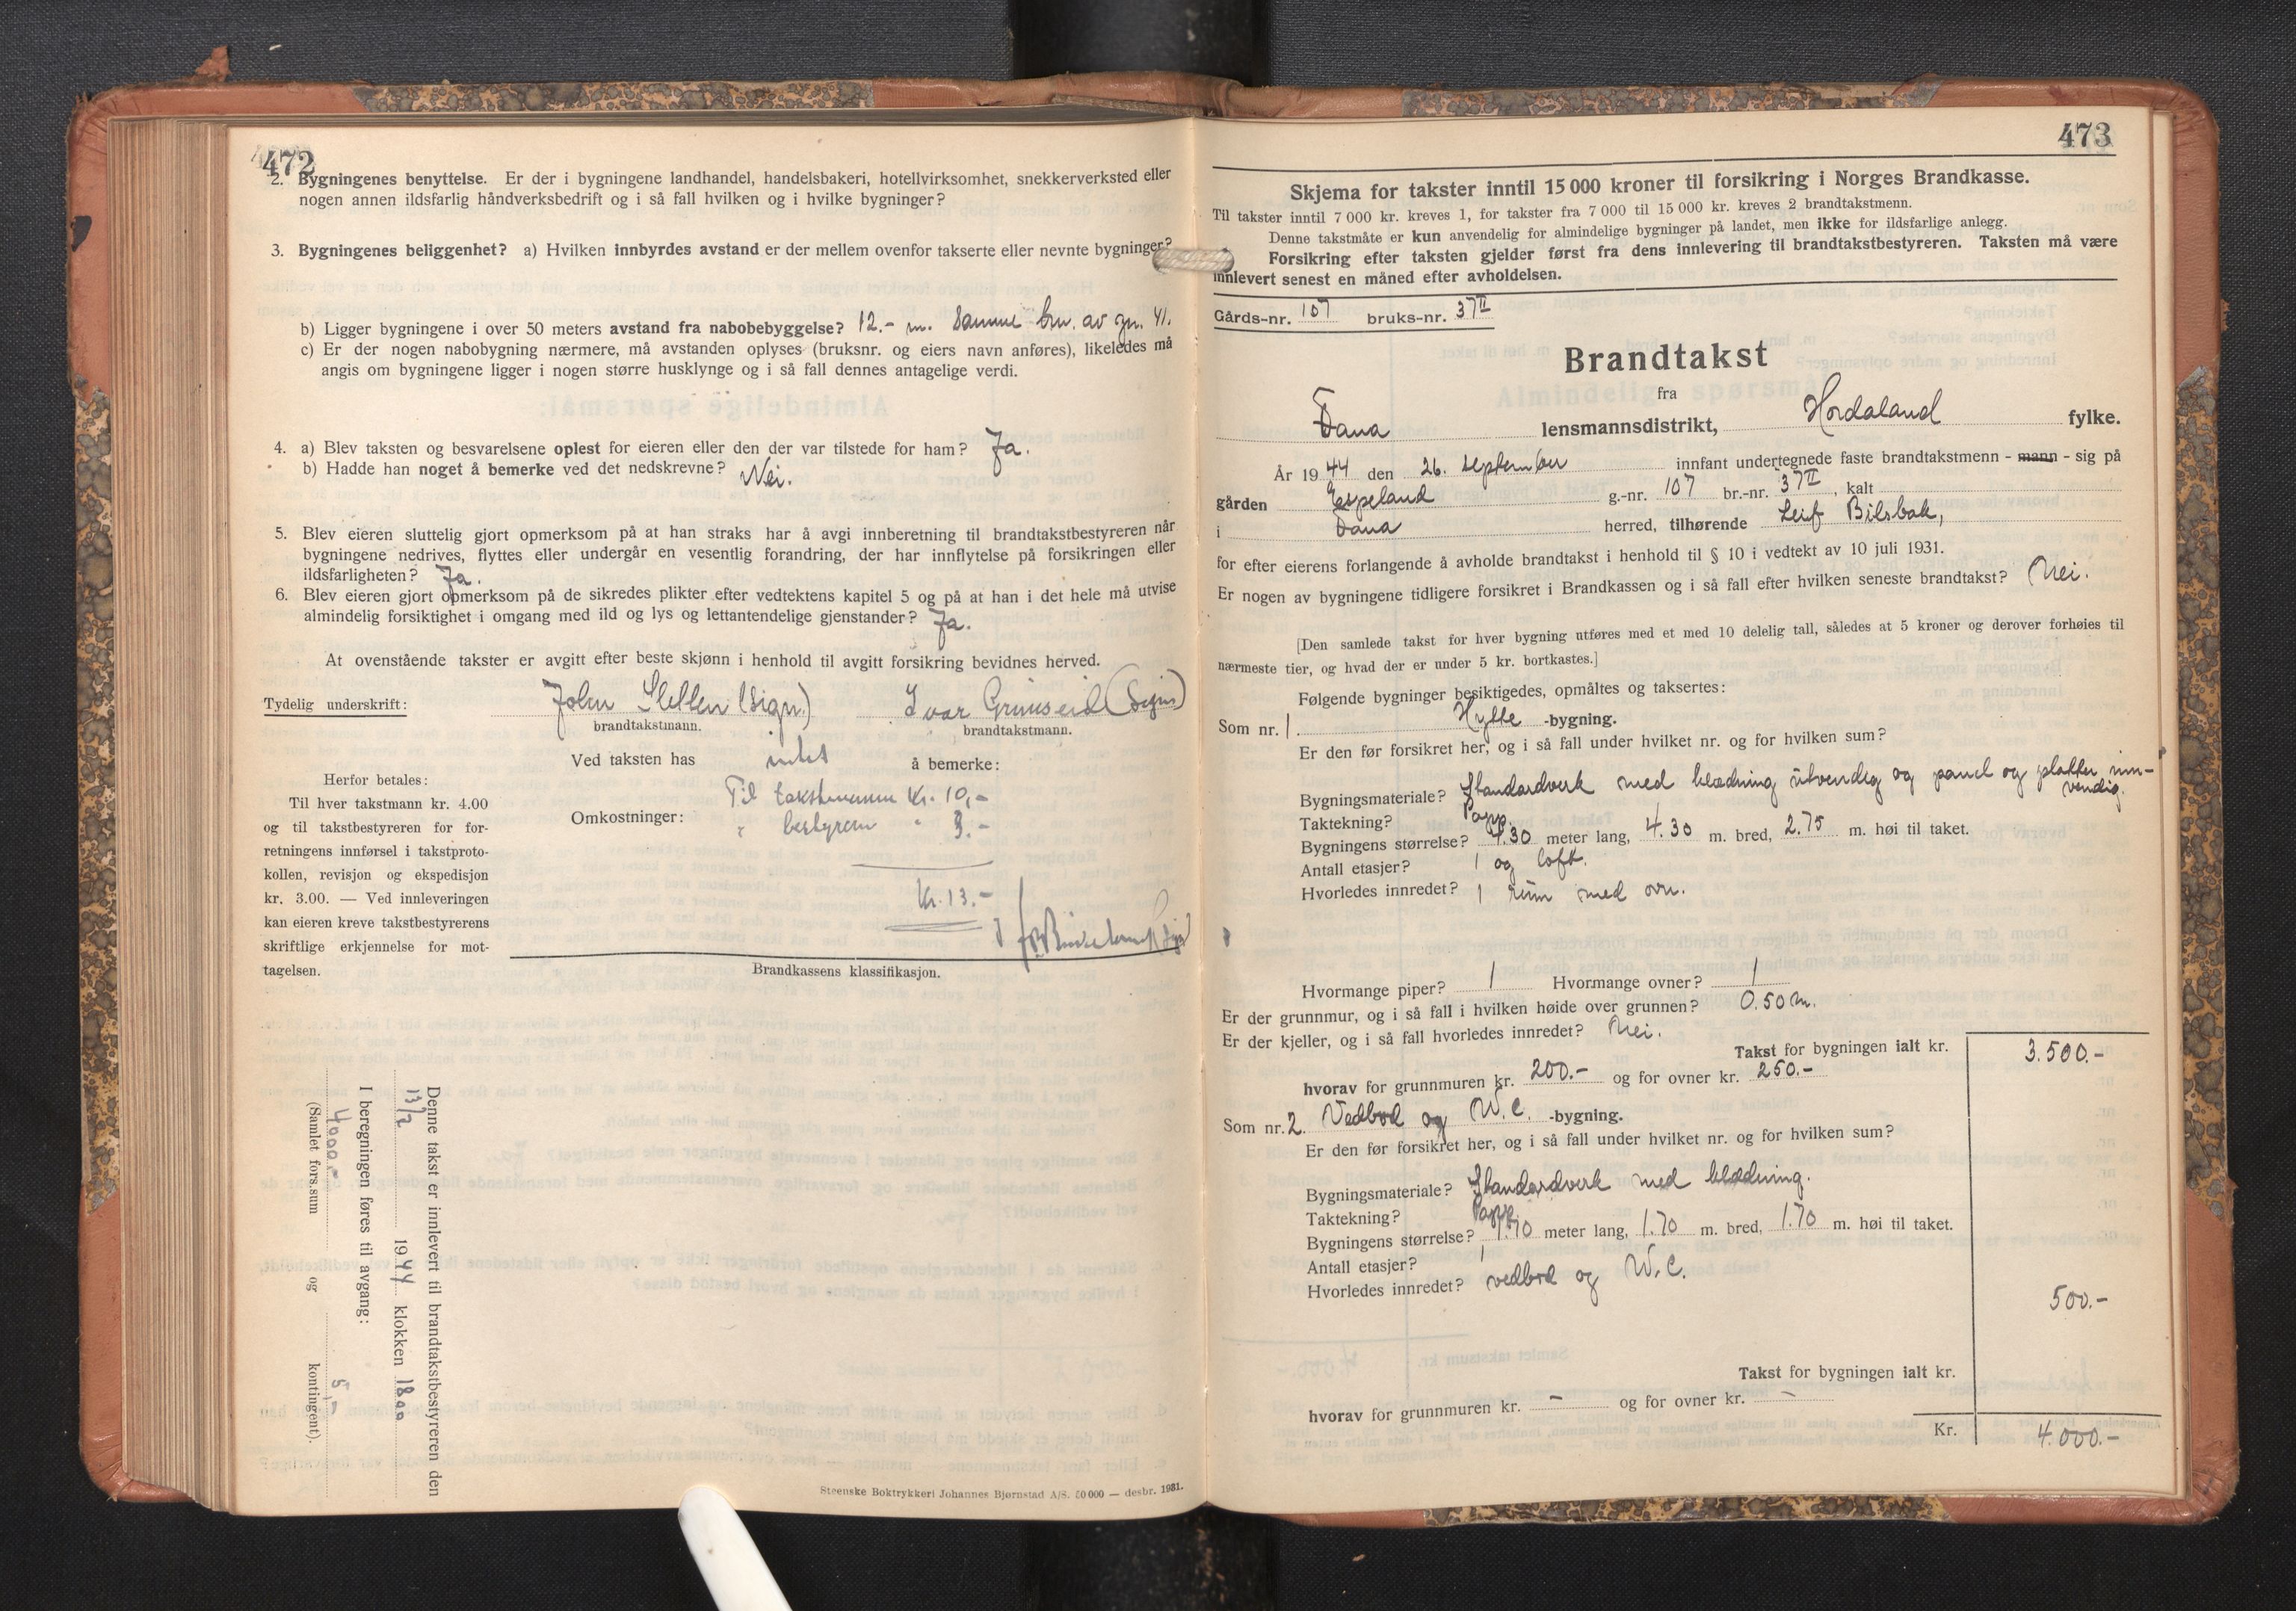 472
2. Bygningenes benyttelse. Er der i bygningene landhandel, handelsbakeri, hotellvirksomhet, snekkerverksted eller
nogen annen ildsfarlig håndverksbedrift og i så fall hvilken og i hvilke bygninger?
3. Bygningenes beliggenhet? a) Hvilken innbyrdes avstand er der mellem ovenfor takserte eller nevnte bygninger?
b) Ligger bygningene i over 50 meters avstand fra nabobebyggelse? 12.- m. Samme bru. av gn. 41.
c) Er der nogen nabobygning nærmere, må avstanden oplyses (bruksnr. og eiers navn anføres), likeledes må
angis om bygningene ligger i nogen større husklynge og i så fall dennes antagelige verdi.
4. a) Blev taksten og besvarelsene oplest for eieren eller den der var tilstede for ham? Ja.
b) Hadde han noget å bemerke ved det nedskrevne? Nei.
5. Blev eieren sluttelig gjort opmerksom på at han straks har å avgi innberetning til brandtakstbestyreren når
bygningene nedrives, flyttes eller undergår en vesentlig forandring, der har innflytelse på forsikringen eller
ildsfarligheten? Ja.
6. Blev eieren gjort opmerksom på de sikredes plikter efter vedtektens kapitel 5 og på at han i det hele må utvise
almindelig forsiktighet i omgang med ild og lys og lettantendelige gjenstander? Ja.
At ovenstående takster er avgitt efter beste skjønn i henhold til avgitt forsikring bevidnes herved.
Tydelig underskrift: John Sletten (sign.) Ivar Grimseid (sign)
brandtakstmann. brandtakstmann.
Ved taksten has intet å bemerke:
Herfor betales:
Til hver takstmann kr. 4.00
og til takstbestyreren for for-
retningens innførsel i takstproto-
kollen, revisjon og ekspedisjon
kr. 3.00. — Ved innleveringen
kan eieren kreve takstbestyrerens
skriftlige erkjennelse for mot-
tagelsen.
Omkostninger: Til takstmennene Kr. 10,-
" bestyreren " 3.-
Kr. 13.-
Brandkassens klassifikasjon.
Denne takst er innlevert til brandtakstbestyreren den
13/2 1944 klokken 1800
I beregningen føres til avgang:
4000.- 5
(Samlet fors.sum og kontingent).
Steenske Boktrykkeri Johannes Bjørnstad A/S. 50 000 — desbr. 1931.
473
Skjema for takster inntil 15 000 kroner til forsikring i Norges Brandkasse.
Til takster inntil 7 000 kr. kreves 1, for takster fra 7 000 til 15 000 kr. kreves 2 brandtakstmenn.
Denne takstmåte er kun anvendelig for almindelige bygninger på landet, men ikke for ildsfarlige anlegg.
Forsikring efter taksten gjelder først fra dens innlevering til brandtakstbestyreren. Taksten må være
innlevert senest en måned efter avholdelsen.
Gårds-nr. 107 bruks-nr. 37II
Brandtakst
fra
Fana lensmannsdistrikt, Hordaland fylke.
År 1944 den 26. september innfant undertegnede faste brandtakstmenn - mann - sig på
gården Espeland g.-nr. 107 br.-nr. 37II, kalt
i Fana herred, tilhørende Leif Bilsbak,
for efter eierens forlangende å avholde brandtakst i henhold til § 10 i vedtekt av 10 juli 1931.
Er nogen av bygningene tidligere forsikret i Brandkassen og i så fall efter hvilken seneste brandtakst? Nei.
[Den samlede takst for hver bygning utføres med et med 10 delelig tall, således at 5 kroner og derover forhøies til
nærmeste tier, og hvad der er under 5 kr. bortkastes.]
Følgende bygninger besiktigedes, opmåltes og taksertes:
Som nr. 1. Hytte -bygning.
Er den før forsikret her, og i så fall under hvilket nr. og for hvilken sum?
Bygningsmateriale? Standardverk med klædning utvendig og panel og platter inn-
vendig.
Taktekning? Papp
Bygningens størrelse? 4.30 meter lang, 4.30 m. bred, 2.75 m. høi til taket.
Antall etasjer? 1 og loft.
Hvorledes innredet? 1 rum med ovn.
Hvormange piper? 1 Hvormange ovner? 1
Er der grunnmur, og i så fall i hvilken høide over grunnen? 0.50 m.
Er der kjeller, og i så fall hvorledes innredet? Nei.
Takst for bygningen ialt kr. 3.500.-
hvorav for grunnmuren kr. 200.- og for ovner kr. 250.-
Som nr. 2. Vedbod og W.C. -bygning.
Er den før forsikret her, og i så fall under hvilket nr. og for hvilken sum?
Bygningsmateriale? Standardverk med klædning.
Taktekning? Papp.
Bygningens størrelse? 1.70 meter lang, 1.70 m. bred, 1.70 m. høi til taket.
Antall etasjer? 1
Hvorledes innredet? vedbod og W.C.
500.-
Takst for bygningen ialt kr.
hvorav for grunnmuren kr. - og for ovner kr. -
Kr. 4.000.-